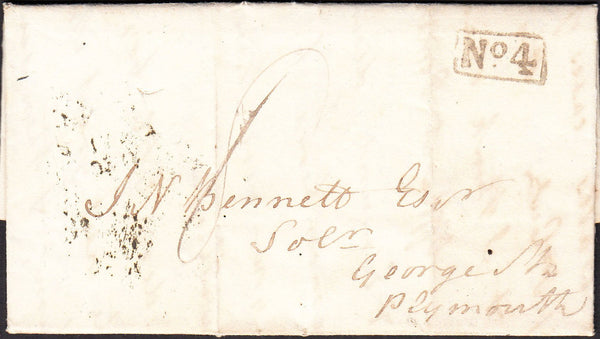 No 4
J N Bennett Esqr
Solr
George St
Plymouth